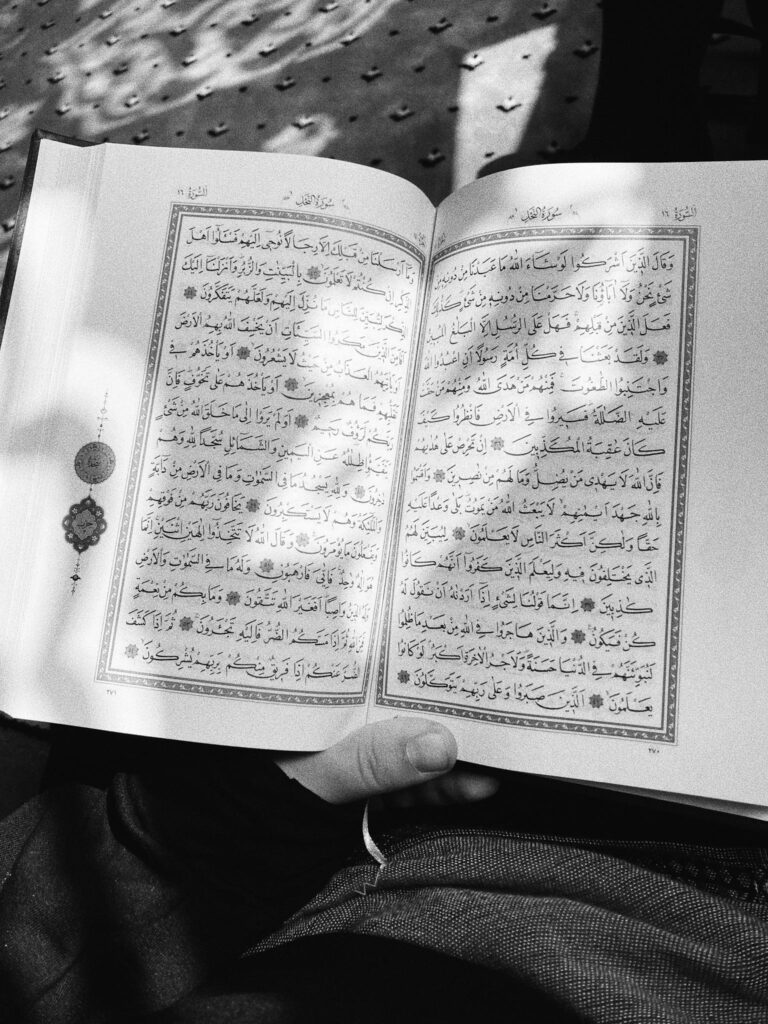 اَلسُّورَةُ ١٦
سُورَةُ النَّحْلِ
وَقَالَ الَّذ۪ينَ اَشْرَكُوا لَوْ شَٓاءَ اللّٰهُ مَا عَبَدْنَا مِنْ دُونِه۪ مِنْ
شَيْءٍ نَحْنُ وَلَٓا اٰبَٓاؤُ۬نَا وَلَا حَرَّمْنَا مِنْ دُونِه۪ مِنْ شَيْءٍ كَذٰلِكَ
فَعَلَ الَّذ۪ينَ مِنْ قَبْلِهِمْ فَهَلْ عَلَى الرُّسُلِ اِلَّا الْبَلَاغُ الْمُب۪ينُ
وَلَقَدْ بَعَثْنَا ف۪ي كُلِّ اُمَّةٍ رَسُولًا اَنِ اعْبُدُوا اللّٰهَ
وَاجْتَنِبُوا الطَّاغُوتَ فَمِنْهُمْ مَنْ هَدَى اللّٰهُ وَمِنْهُمْ مَنْ حَقَّتْ
عَلَيْهِ الضَّلَالَةُ فَس۪يرُوا فِي الْاَرْضِ فَانْظُرُوا كَيْفَ
كَانَ عَاقِبَةُ الْمُكَذِّب۪ينَ اِنْ تَحْرِصْ عَلٰى هُدٰيهُمْ
فَاِنَّ اللّٰهَ لَا يَهْد۪ي مَنْ يُضِلُّ وَمَا لَهُمْ مِنْ نَاصِر۪ينَ وَاَقْسَمُوا
بِاللّٰهِ جَهْدَ اَيْمَانِهِمْ لَا يَبْعَثُ اللّٰهُ مَنْ يَمُوتُ بَلٰى وَعْدًا عَلَيْهِ
حَقًّا وَلٰكِنَّ اَكْثَرَ النَّاسِ لَا يَعْلَمُونَ لِيُبَيِّنَ لَهُمُ
الَّذ۪ي يَخْتَلِفُونَ ف۪يهِ وَلِيَعْلَمَ الَّذ۪ينَ كَفَرُٓوا اَنَّهُمْ كَانُوا
كَاذِب۪ينَ اِنَّمَا قَوْلُنَا لِشَيْءٍ اِذَٓا اَرَدْنَاهُ اَنْ نَقُولَ لَهُ
كُنْ فَيَكُونُ وَالَّذ۪ينَ هَاجَرُوا فِي اللّٰهِ مِنْ بَعْدِ مَا ظُلِمُوا
لَنُبَوِّئَنَّهُمْ فِي الدُّنْيَا حَسَنَةً وَلَاَجْرُ الْاٰخِرَةِ اَكْبَرُ لَوْ كَانُوا
يَعْلَمُونَ اَلَّذ۪ينَ صَبَرُوا وَعَلٰى رَبِّهِمْ يَتَوَكَّلُونَ
٢٧٠
سُورَةُ النَّحْلِ
اَلسُّورَةُ ١٦
وَمَٓا اَرْسَلْنَا مِنْ قَبْلِكَ اِلَّا رِجَالًا نُوح۪ٓي اِلَيْهِمْ فَسْـَٔلُٓوا اَهْلَ
الذِّكْرِ اِنْ كُنْتُمْ لَا تَعْلَمُونَ بِالْبَيِّنَاتِ وَالزُّبُرِ وَاَنْزَلْنَٓا اِلَيْكَ
الذِّكْرَ لِتُبَيِّنَ لِلنَّاسِ مَا نُزِّلَ اِلَيْهِمْ وَلَعَلَّهُمْ يَتَفَكَّرُونَ
اَفَاَمِنَ الَّذ۪ينَ مَكَرُوا السَّيِّـَٔاتِ اَنْ يَخْسِفَ اللّٰهُ بِهِمُ الْاَرْضَ
اَوْ يَأْتِيَهُمُ الْعَذَابُ مِنْ حَيْثُ لَا يَشْعُرُونَ اَوْ يَأْخُذَهُمْ ف۪ي
تَقَلُّبِهِمْ فَمَا هُمْ بِمُعْجِز۪ينَ اَوْ يَأْخُذَهُمْ عَلٰى تَخَوُّفٍ فَاِنَّ
رَبَّكُمْ لَرَؤُ۫فٌ رَح۪يمٌ اَوَلَمْ يَرَوْا اِلٰى مَا خَلَقَ اللّٰهُ مِنْ شَيْءٍ
يَتَفَيَّؤُ۬ا ظِلَالُهُ عَنِ الْيَم۪ينِ وَالشَّمَٓائِلِ سُجَّدًا لِلّٰهِ وَهُمْ
دَاخِرُونَ وَلِلّٰهِ يَسْجُدُ مَا فِي السَّمٰوَاتِ وَمَا فِي الْاَرْضِ مِنْ دَٓابَّةٍ
وَالْمَلٰٓئِكَةُ وَهُمْ لَا يَسْتَكْبِرُونَ يَخَافُونَ رَبَّهُمْ مِنْ فَوْقِهِمْ
وَيَفْعَلُونَ مَا يُؤْمَرُونَ وَقَالَ اللّٰهُ لَا تَتَّخِذُٓوا اِلٰهَيْنِ اثْنَيْنِ اِنَّمَا
هُوَ اِلٰهٌ وَاحِدٌ فَاِيَّايَ فَارْهَبُونِ وَلَهُ مَا فِي السَّمٰوَاتِ وَالْاَرْضِ
وَلَهُ الدّ۪ينُ وَاصِبًا اَفَغَيْرَ اللّٰهِ تَتَّقُونَ وَمَا بِكُمْ مِنْ نِعْمَةٍ
فَمِنَ اللّٰهِ ثُمَّ اِذَا مَسَّكُمُ الضُّرُّ فَاِلَيْهِ تَجْـَٔرُونَ ثُمَّ اِذَا كَشَفَ
الضُّرَّ عَنْكُمْ اِذَا فَر۪يقٌ مِنْكُمْ بِرَبِّهِمْ يُشْرِكُونَ
٢٧١